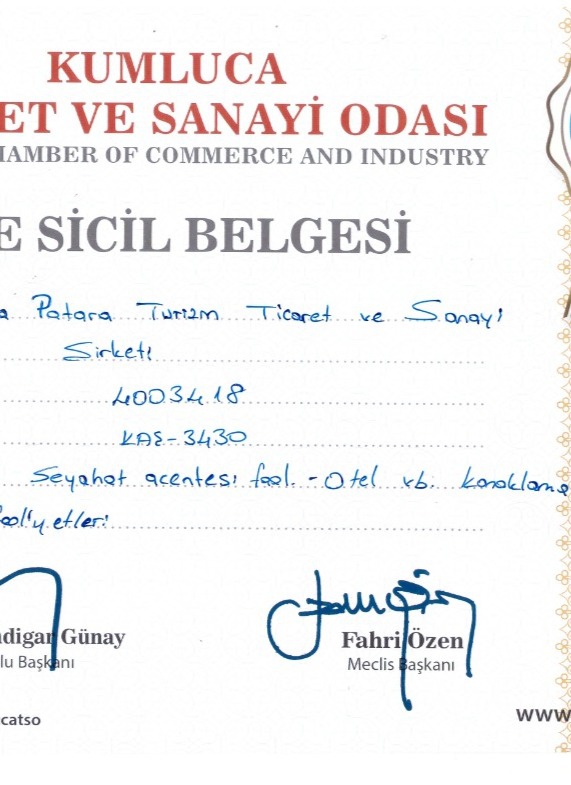 KUMLUCA
ET VE SANAYİ ODASI
HAMBER OF COMMERCE AND INDUSTRY
E SİCİL BELGESİ
a Patara Turizm Ticaret ve Sanayi
Şirketi
4003418
KAŞ-3430
Seyahat acentesi faal. - Otel vb. konaklama
faaliyetleri
digar Günay Fahri Özen
lu Başkanı Meclis Başkanı
catso www